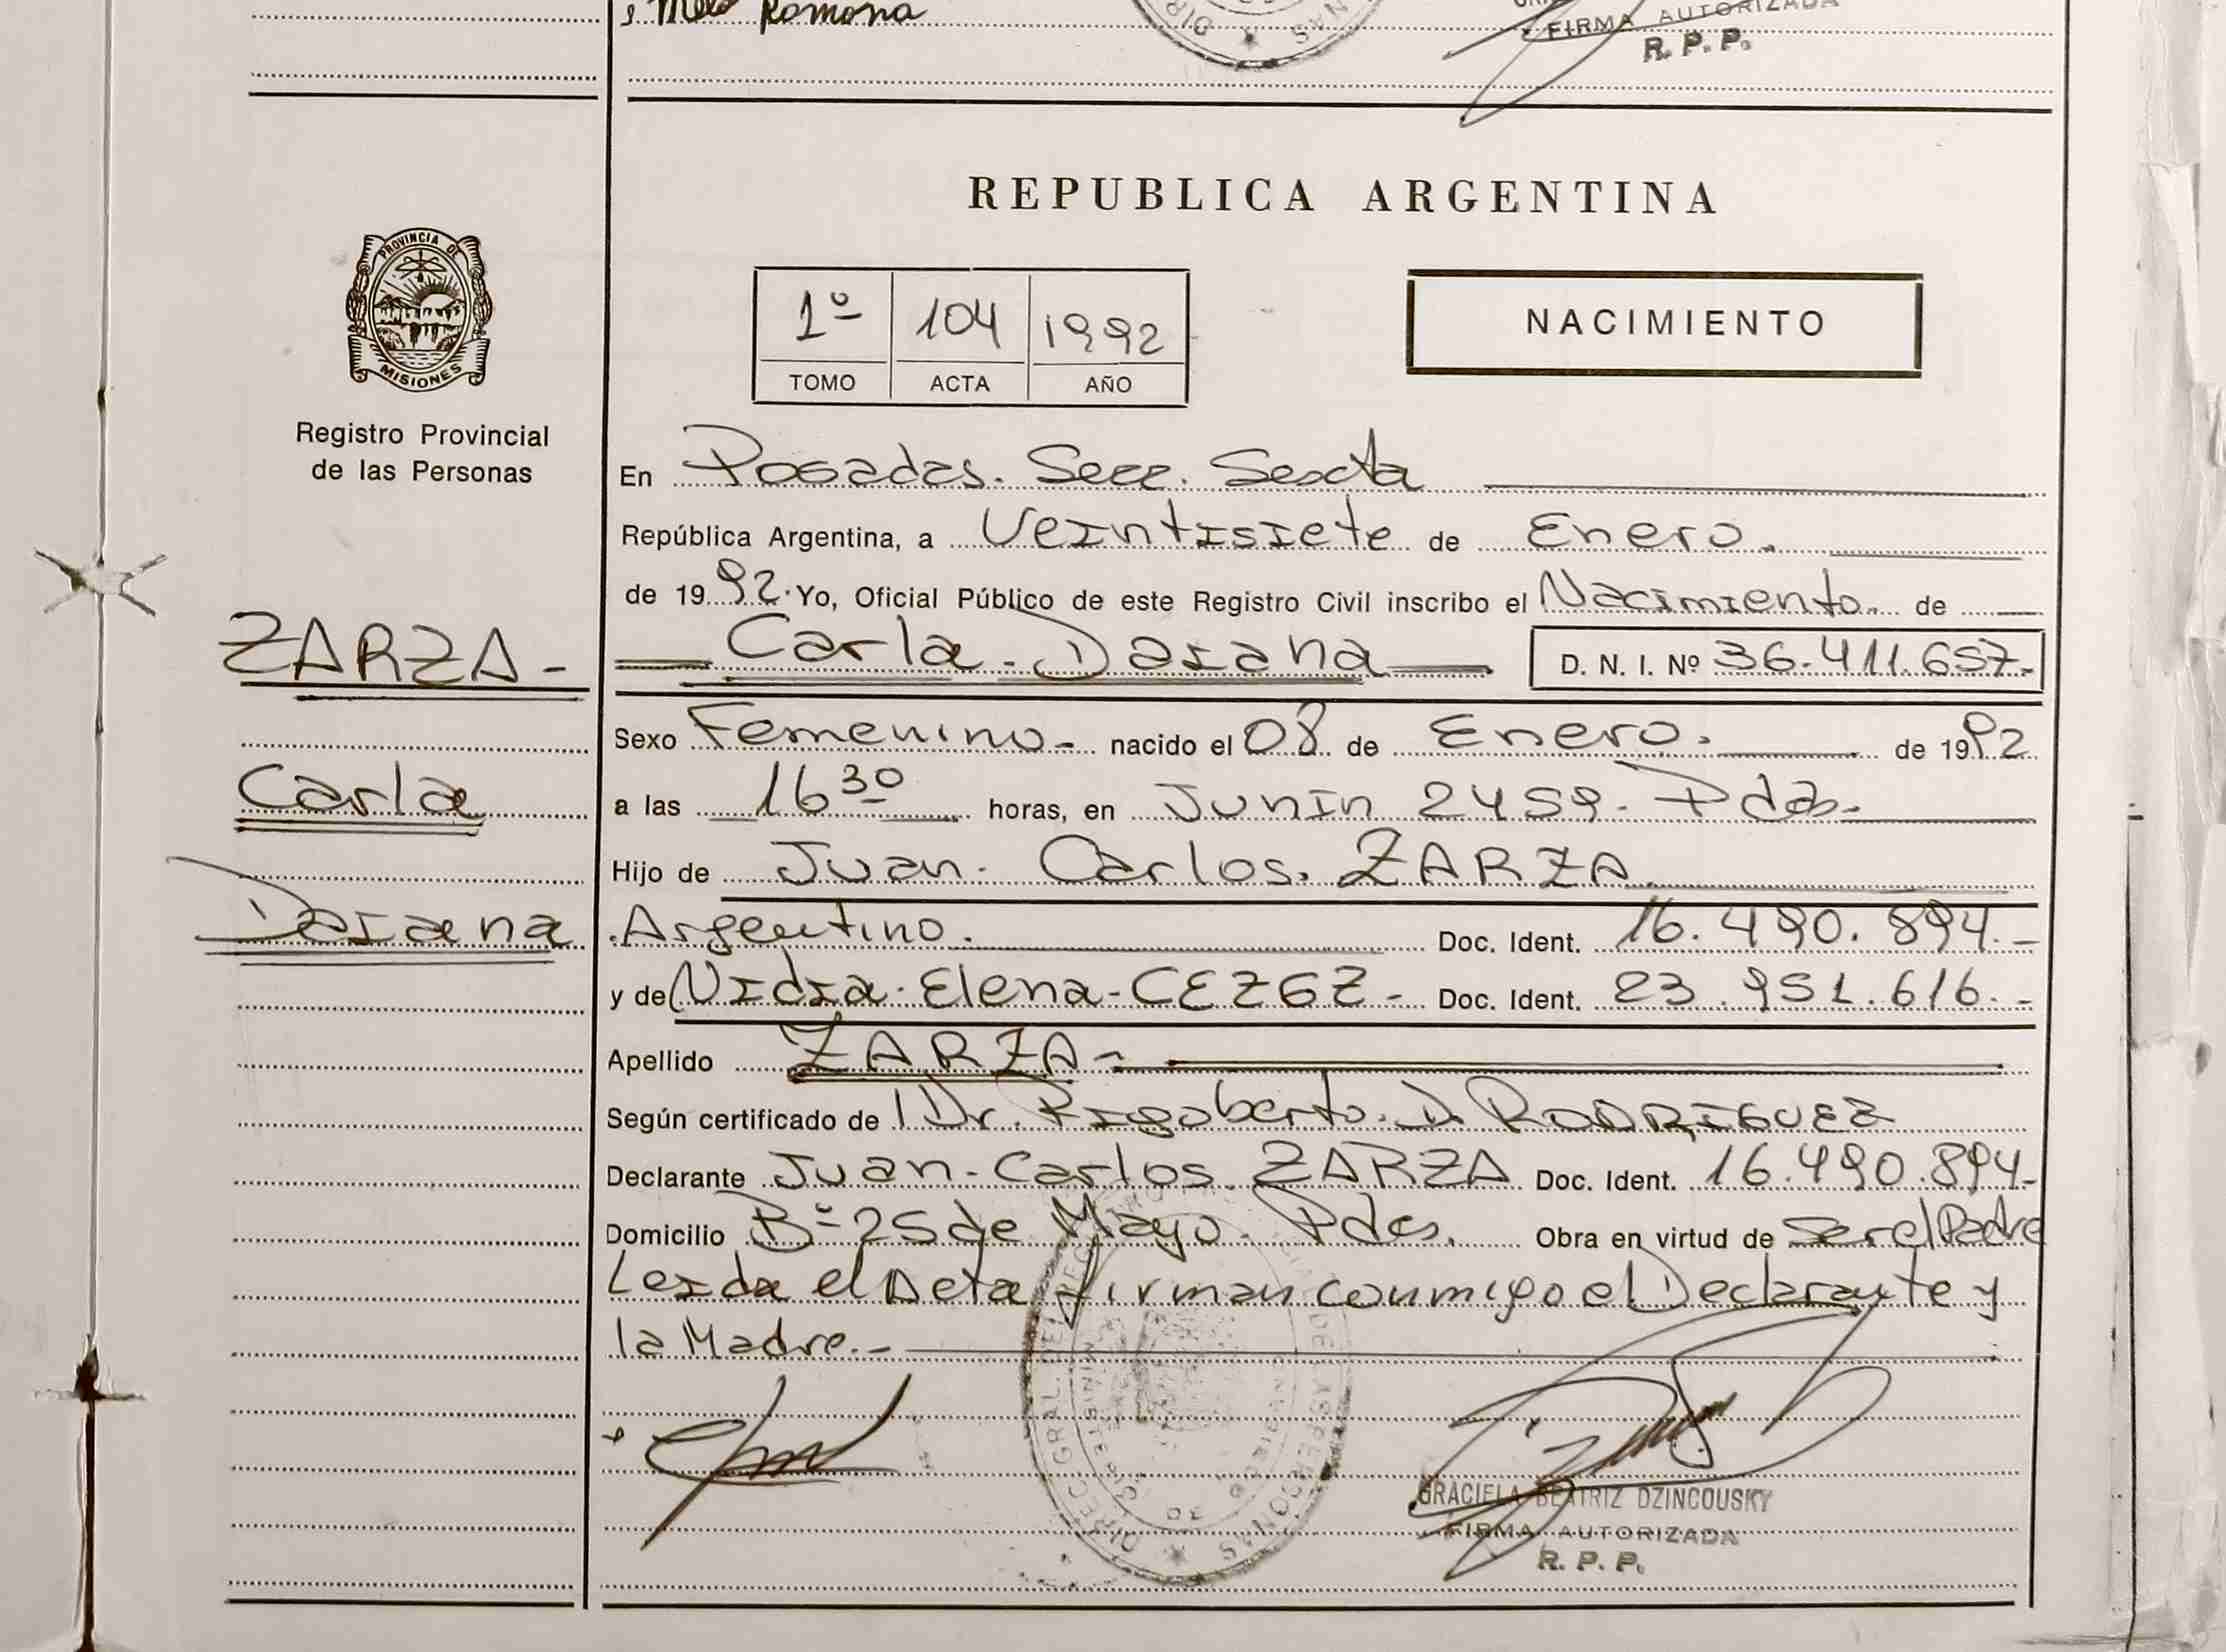 Romona
FIRMA AUTORIZADA
R. P. P.
REPUBLICA ARGENTINA
PROVINCIA DE
MISIONES
Registro Provincial
de las Personas
1º 104 1992
TOMO ACTA AÑO
NACIMIENTO
En Posadas. Secc. Sexta
República Argentina, a Veintisiete de Enero.
de 1992. Yo, Oficial Público de este Registro Civil inscribo el Nacimiento. de
ZARZA-
Carla
Daiana
Carla. Daiana D. N. I. Nº 36.411.657.-
Sexo Femenino- nacido el 08 de Enero. de 1992
a las 16 30 horas, en Junin 2459. Pdas.-
Hijo de Juan. Carlos. ZARZA.
Argentino. Doc. Ident. 16.490.894.-
y de Nidia. Elena- Doc. Ident. 23.951.616.-
Apellido ZARZA-
Según certificado de Dr. Rigoberto. D. RODRIGUEZ
Declarante Juan- Carlos. ZARZA Doc. Ident. 16.490.894-
Domicilio Bº 25 de Mayo. Pdas. Obra en virtud de Ser el Padre
Leida el Acta firman conmigo el Declarante y
la Madre.-
GRACIELA BEATRIZ DZINCOUSKY
FIRMA AUTORIZADA
R. P. P.